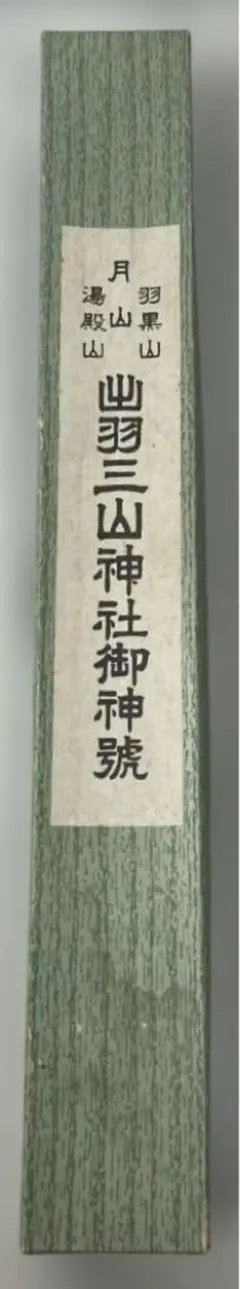 羽黒山
月山
湯殿山
出羽三山神社御神號